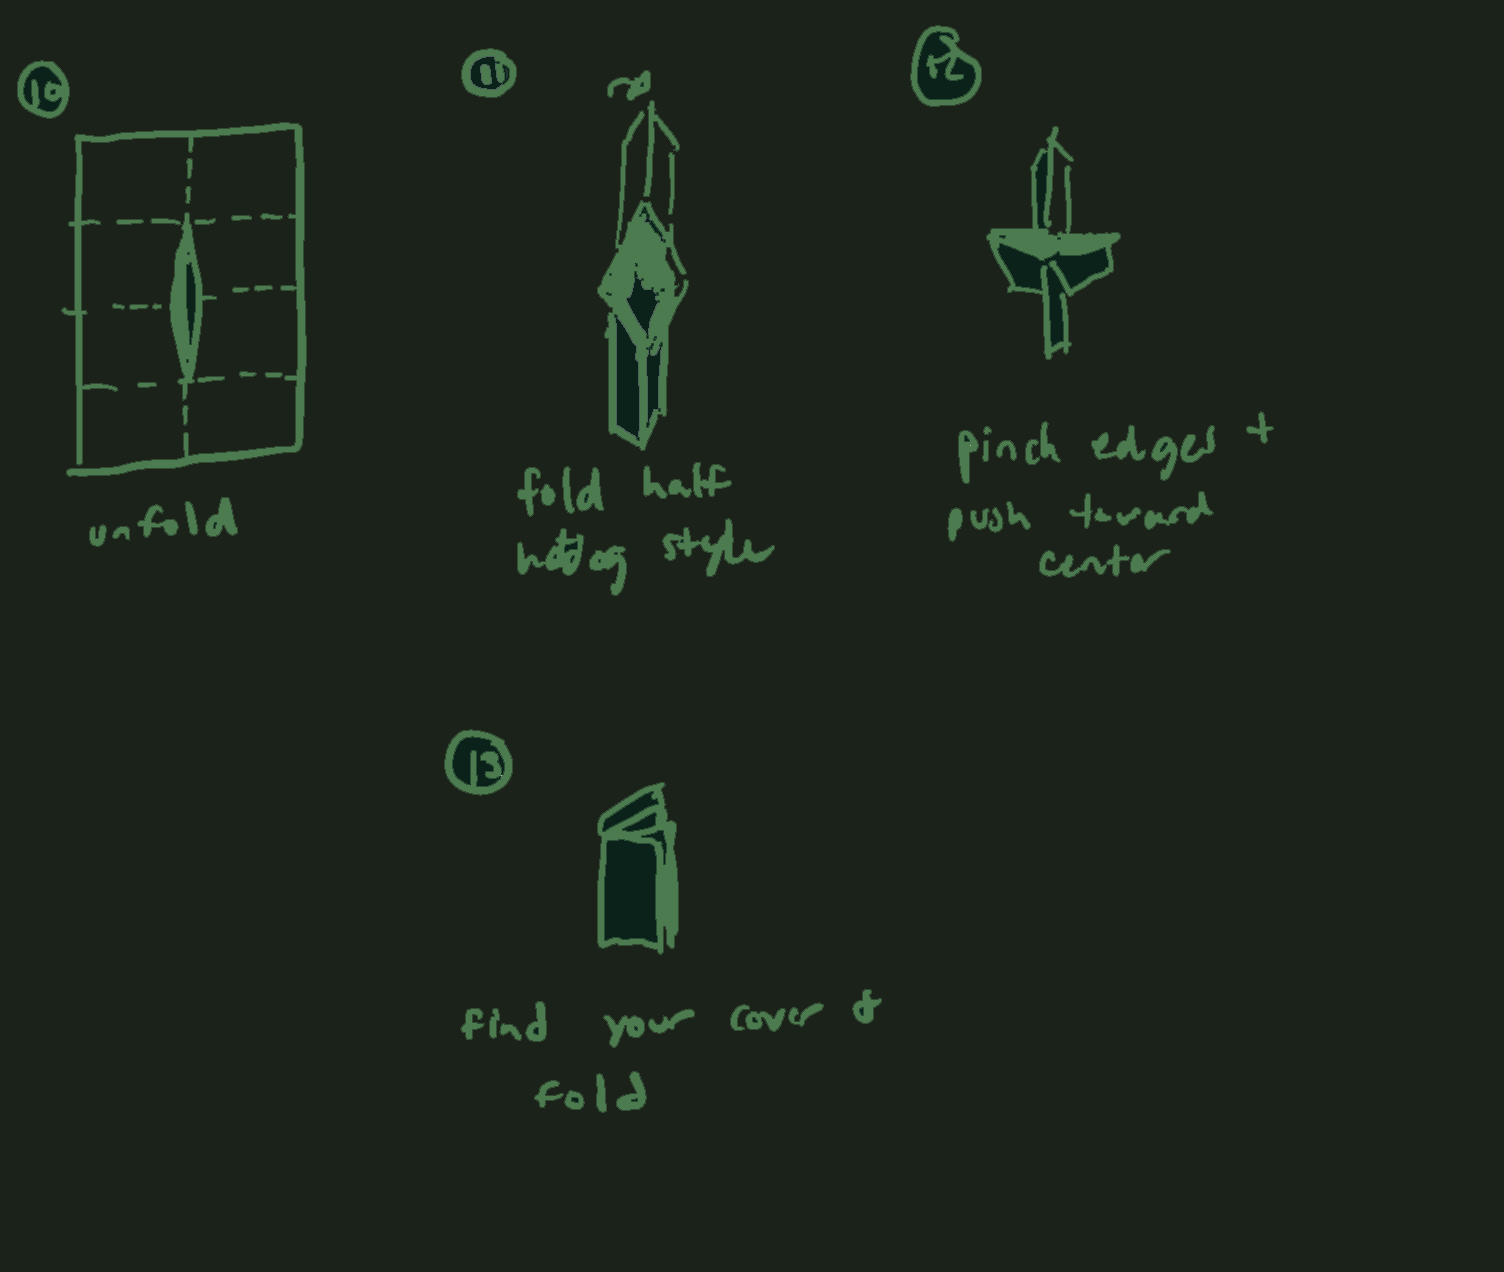 10
unfold
11
fold half
hotdog style
12
pinch edges +
push toward
center
13
find your cover &
fold